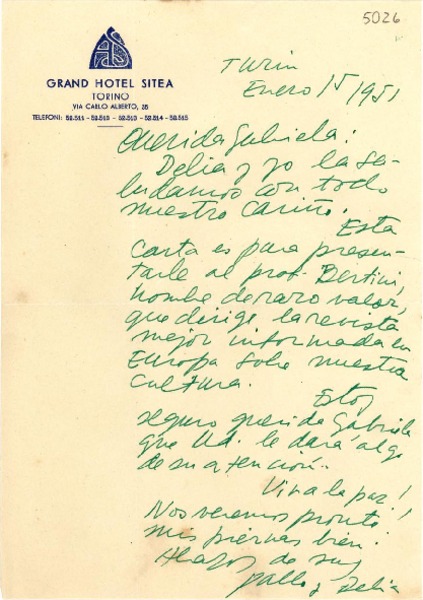 5026
GRAND HOTEL SITEA
TORINO
VIA CARLO ALBERTO, 35
TELEFONI: 52.511 - 52.512 - 52.513 - 52.514 - 52.515
Turin
Enero 15 1951
Querida Gabriela:
Delia y yo la sa-
ludamos con todo
nuestro cariño.
Esta
carta es para presen-
tarle al prof. Bertini,
hombre de raro valor,
que dirige la revista
mejor informada en
Europa sobre nuestra
cultura.
Estoy
seguro querida Gabriela
que Ud. le dará algo
de su atención.
Viva la paz!
Nos veremos pronto
mis piernas bien!
Abrazos de sus
Pablo y Delia